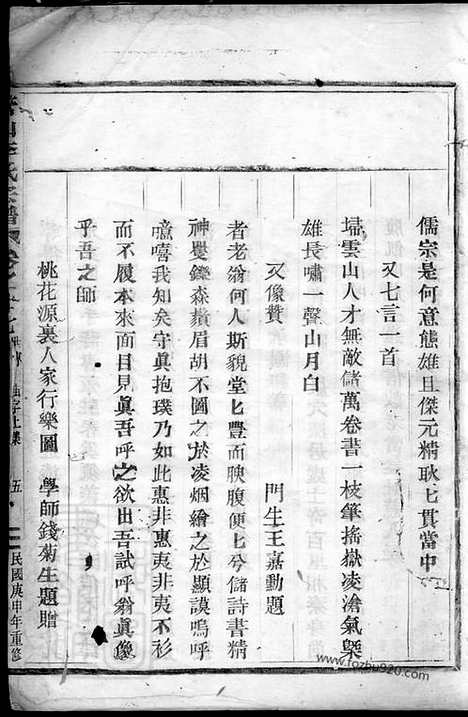 儒宗是何意態雄且傑元精耿匕貫當中
又七言一首
埽雲山人才無敵儲萬卷書一枝筆搖嶽凌滄氣槩
雄長嘯一聲山月白
又像贊
門生王嘉勳題
耆老翁何人斯貌堂匕豐而腴腹便匕兮儲詩書精
神矍鑠森鬚眉胡不圖之於凌烟繪之於顯謨嗚呼
噫嘻我知矣守眞抱璞乃如此惠非惠夷非夷不衫
而不履本來面目見眞吾呼之欲出吾試呼翁眞像
乎吾之師
桃花源裏人家行樂圖 學師錢菊生題贈
氏宗譜
五
民國庚申年重修
www.fozhu920.com